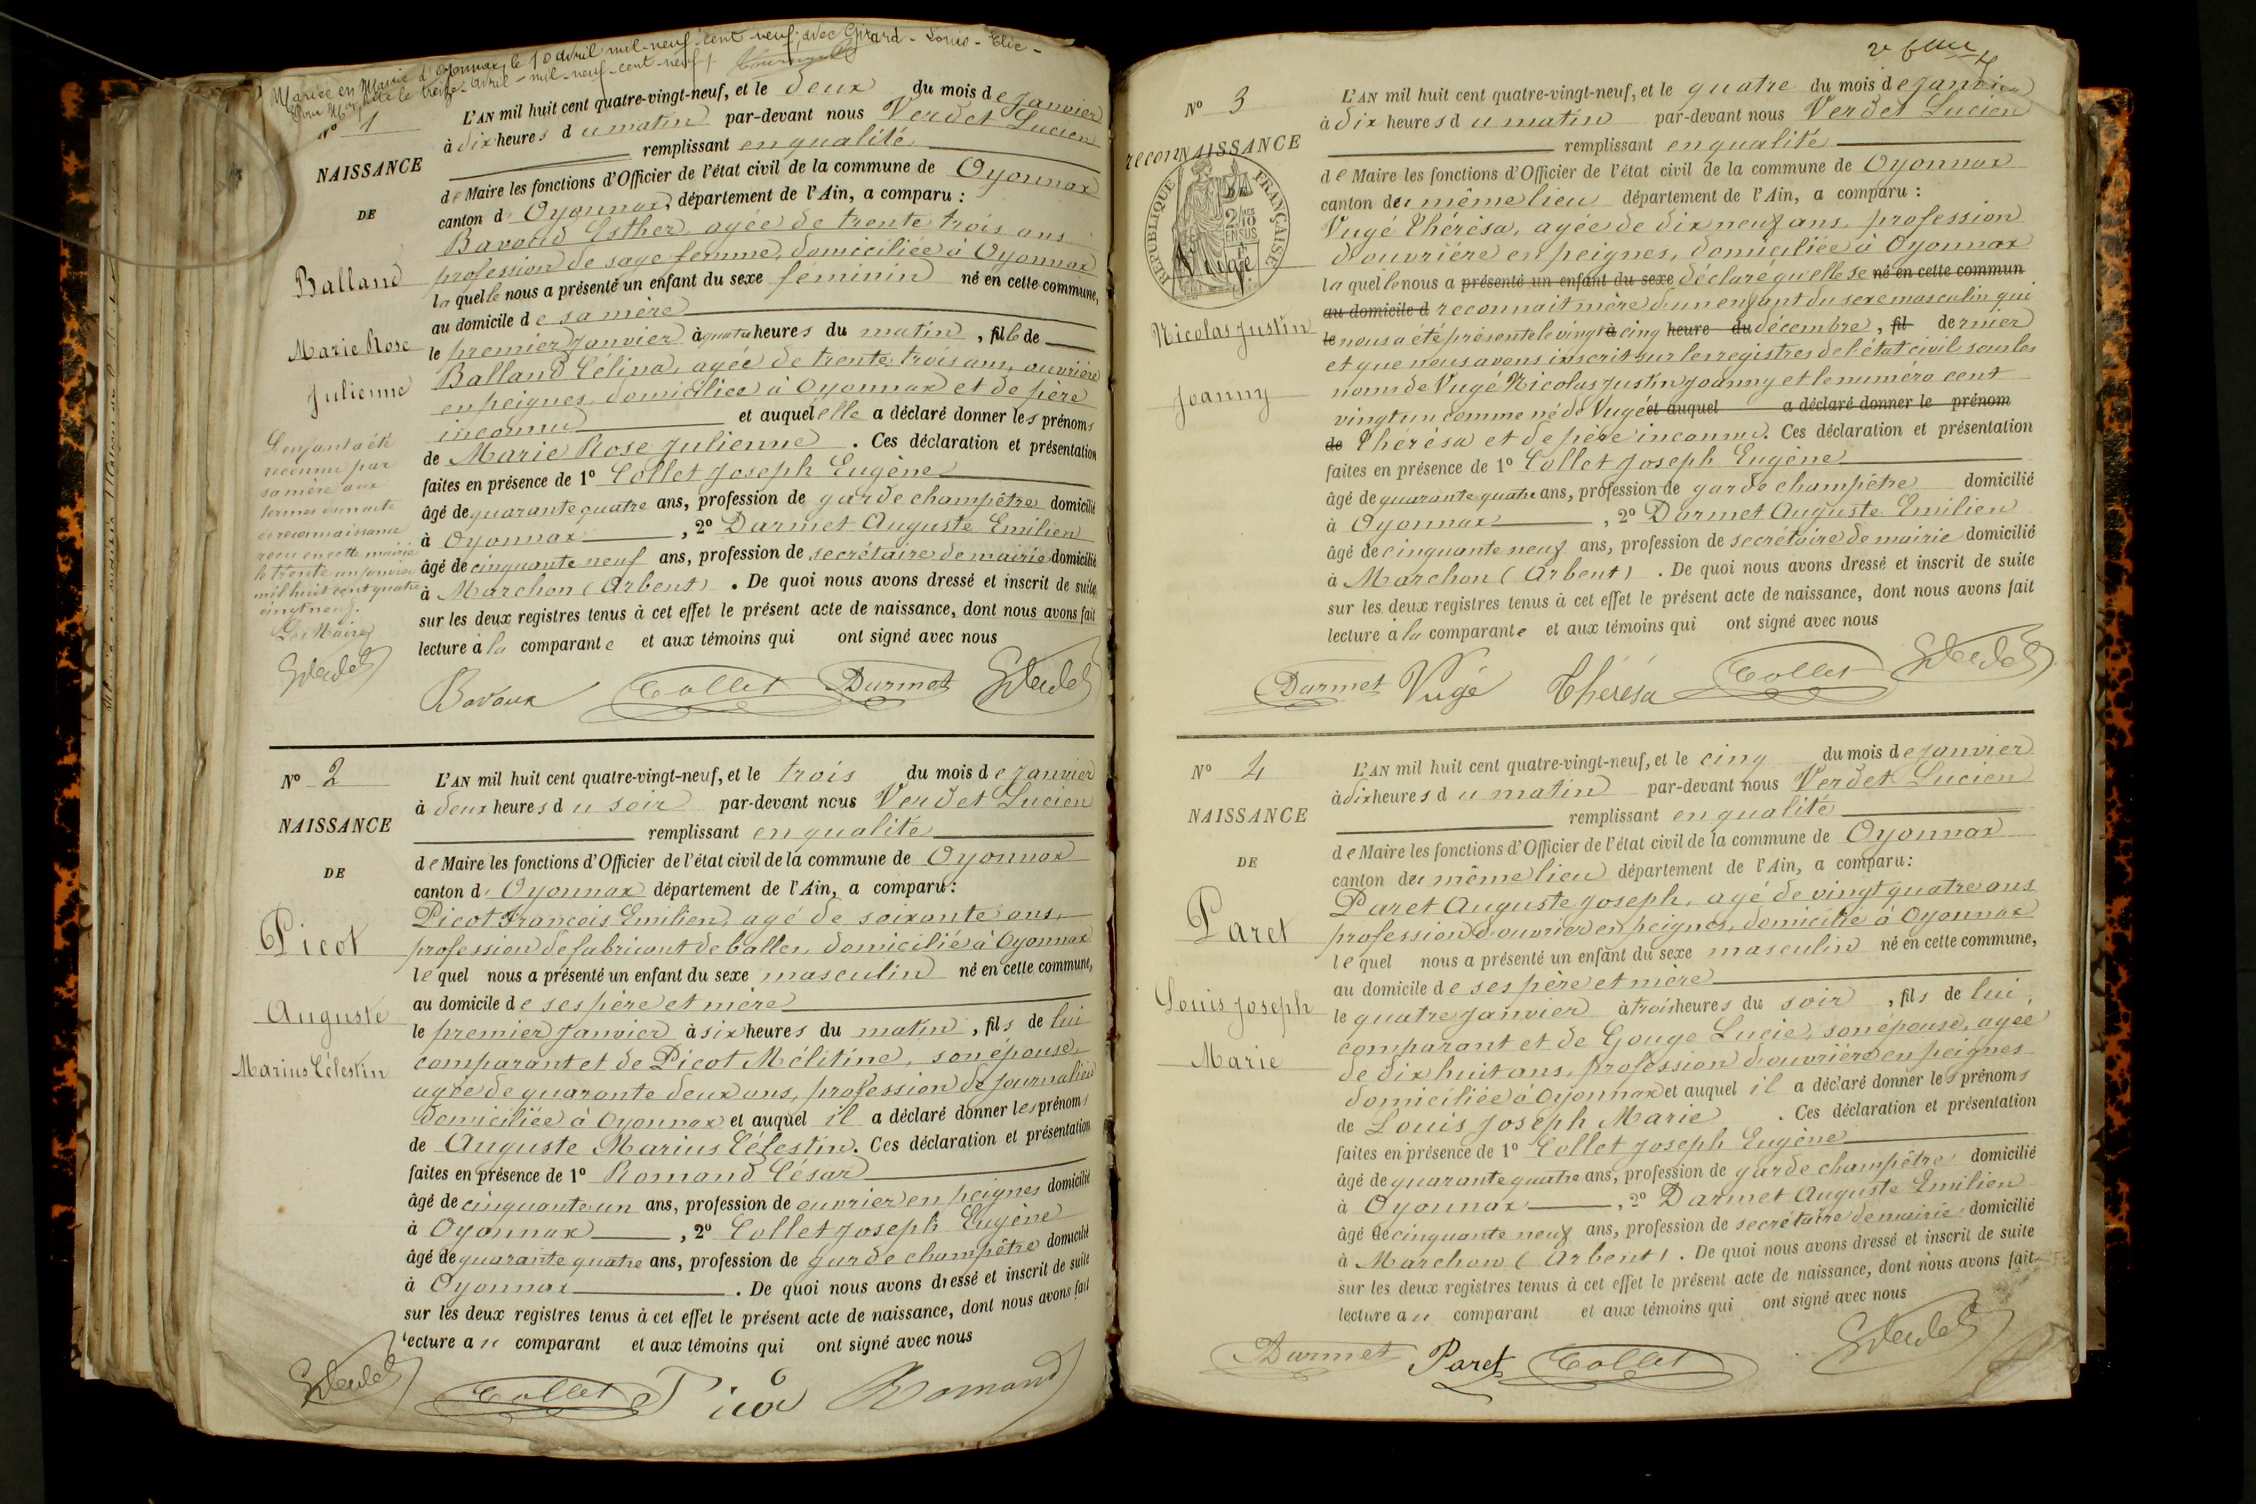 Mariée en Mairie d'Oyonnax, le 10 avril mil-neuf-cent-neuf, avec Girard - Louis - Elie -
le treize avril - mil-neuf-cent-neuf
N° 1
NAISSANCE
DE
Balland
Marie Rose
Julienne
L'enfant a été
reconnu par
sa mère aux
termes d'un acte
de reconnaissance
reçu en cette mairie
le trente un janvier
mil huit cent quatre
vingt neuf.
Le Maire
L'AN mil huit cent quatre-vingt-neuf, et le deux du mois de Janvier
à dix heures du matin par-devant nous Verdet Lucien
remplissant en qualité
de Maire les fonctions d'Officier de l'état civil de la commune de Oyonnax
canton d' Oyonnax, département de l'Ain, a comparu :
Bavoud Esther, agée de trente trois ans
profession de sage femme, domiciliée à Oyonnax
laquelle nous a présenté un enfant du sexe feminin né en cette commune,
au domicile de sa mère
le premier Janvier à quatre heures du matin, fille de
Balland Célina, agée de trente trois ans, ouvrière
en peignes domiciliée à Oyonnax et de père
inconnu et auquel elle a déclaré donner les prénoms
de Marie Rose Julienne. Ces déclaration et présentation
faites en présence de 1° Collet Joseph Eugène
âgé de quarante quatre ans, profession de garde champêtre domicilié
à Oyonnax, 2° Darmet Auguste Emilien
âgé de cinquante neuf ans, profession de secrétaire de mairie domicilié
à Marchon (Arbent). De quoi nous avons dressé et inscrit de suite
sur les deux registres tenus à cet effet le présent acte de naissance, dont nous avons fait
lecture à la comparante et aux témoins qui ont signé avec nous
Bavoux Collet Darmet
N° 2
NAISSANCE
DE
Picot
Auguste
Marius Célestin
L'AN mil huit cent quatre-vingt-neuf, et le trois du mois de Janvier
à deux heures du soir par-devant nous Verdet Lucien
remplissant en qualité
de Maire les fonctions d'Officier de l'état civil de la commune de Oyonnax
canton d' Oyonnax département de l'Ain, a comparu :
Picot François Emilien, agé de soixante ans,
profession de fabricant de balles, domicilié à Oyonnax
lequel nous a présenté un enfant du sexe masculin né en cette commune,
au domicile de ses père et mère
le premier Janvier à six heures du matin, fils de lui
comparant et de Picot Mélitine, son épouse,
agée de quarante deux ans, profession de journalière
domiciliée à Oyonnax et auquel il a déclaré donner les prénoms
de Auguste Marius Célestin. Ces déclaration et présentation
faites en présence de 1° Romand César
âgé de cinquante un ans, profession de ouvrier en peignes domicilié
à Oyonnax, 2° Collet Joseph Eugène
âgé de quarante quatre ans, profession de garde champêtre domicilié
à Oyonnax. De quoi nous avons dressé et inscrit de suite
sur les deux registres tenus à cet effet le présent acte de naissance, dont nous avons fait
lecture au comparant et aux témoins qui ont signé avec nous
Collet Picot Romand
N° 3
reconNAISSANCE
RÉPUBLIQUE FRANÇAISE
2/10
EN SUS
Vugé
Nicolas Justin
Joanny
L'AN mil huit cent quatre-vingt-neuf, et le quatre du mois de Janvier
à dix heures du matin par-devant nous Verdet Lucien
remplissant en qualité
de Maire les fonctions d'Officier de l'état civil de la commune de Oyonnax
canton du même lieu département de l'Ain, a comparu :
Vugé Thérésa, agée de dix neuf ans, profession
d'ouvrière en peignes, domiciliée à Oyonnax
laquelle nous a présenté un enfant du sexe déclaré quelle se né en cette commun
au domicile d reconnait mère d'un enfant du sexe masculin qui
le nous a été présenté le vingt à cinq heure du décembre, fil dernier
et que nous avons inscrit sur les registres de l'état civil sous les
noms de Vugé Nicolas Justin Joanny et le numéro cent
vingt un comme né de Vugé et auquel a déclaré donner le prénom
de Thérésa et de père inconnu. Ces déclaration et présentation
faites en présence de 1° Collet Joseph Eugène
âgé de quarante quatre ans, profession de garde champêtre domicilié
à Oyonnax, 2° Darmet Auguste Emilien
âgé de cinquante neuf ans, profession de secrétaire de mairie domicilié
à Marchon (Arbent). De quoi nous avons dressé et inscrit de suite
sur les deux registres tenus à cet effet le présent acte de naissance, dont nous avons fait
lecture à la comparante et aux témoins qui ont signé avec nous
Darmet Vugé Thérésa Collet
N° 4
NAISSANCE
DE
Paret
Louis Joseph
Marie
L'AN mil huit cent quatre-vingt-neuf, et le cinq du mois de Janvier
à dix heures du matin par-devant nous Verdet Lucien
remplissant en qualité
de Maire les fonctions d'Officier de l'état civil de la commune de Oyonnax
canton du même lieu département de l'Ain, a comparu :
Paret Auguste Joseph, agé de vingt quatre ans
profession d'ouvrier en peignes, domicilié à Oyonnax
lequel nous a présenté un enfant du sexe masculin né en cette commune,
au domicile de ses père et mère
le quatre Janvier à trois heures du soir, fils de lui
comparant et de Gouge Lucie, son épouse, agée
de dix huit ans, profession d'ouvrière en peignes
domiciliée à Oyonnax et auquel il a déclaré donner les prénoms
de Louis Joseph Marie. Ces déclaration et présentation
faites en présence de 1° Collet Joseph Eugène
âgé de quarante quatre ans, profession de garde champêtre domicilié
à Oyonnax, 2° Darmet Auguste Emilien
âgé de cinquante neuf ans, profession de secrétaire de mairie domicilié
à Marchon (Arbent). De quoi nous avons dressé et inscrit de suite
sur les deux registres tenus à cet effet le présent acte de naissance, dont nous avons fait
lecture au comparant et aux témoins qui ont signé avec nous
Darmet Paret Collet